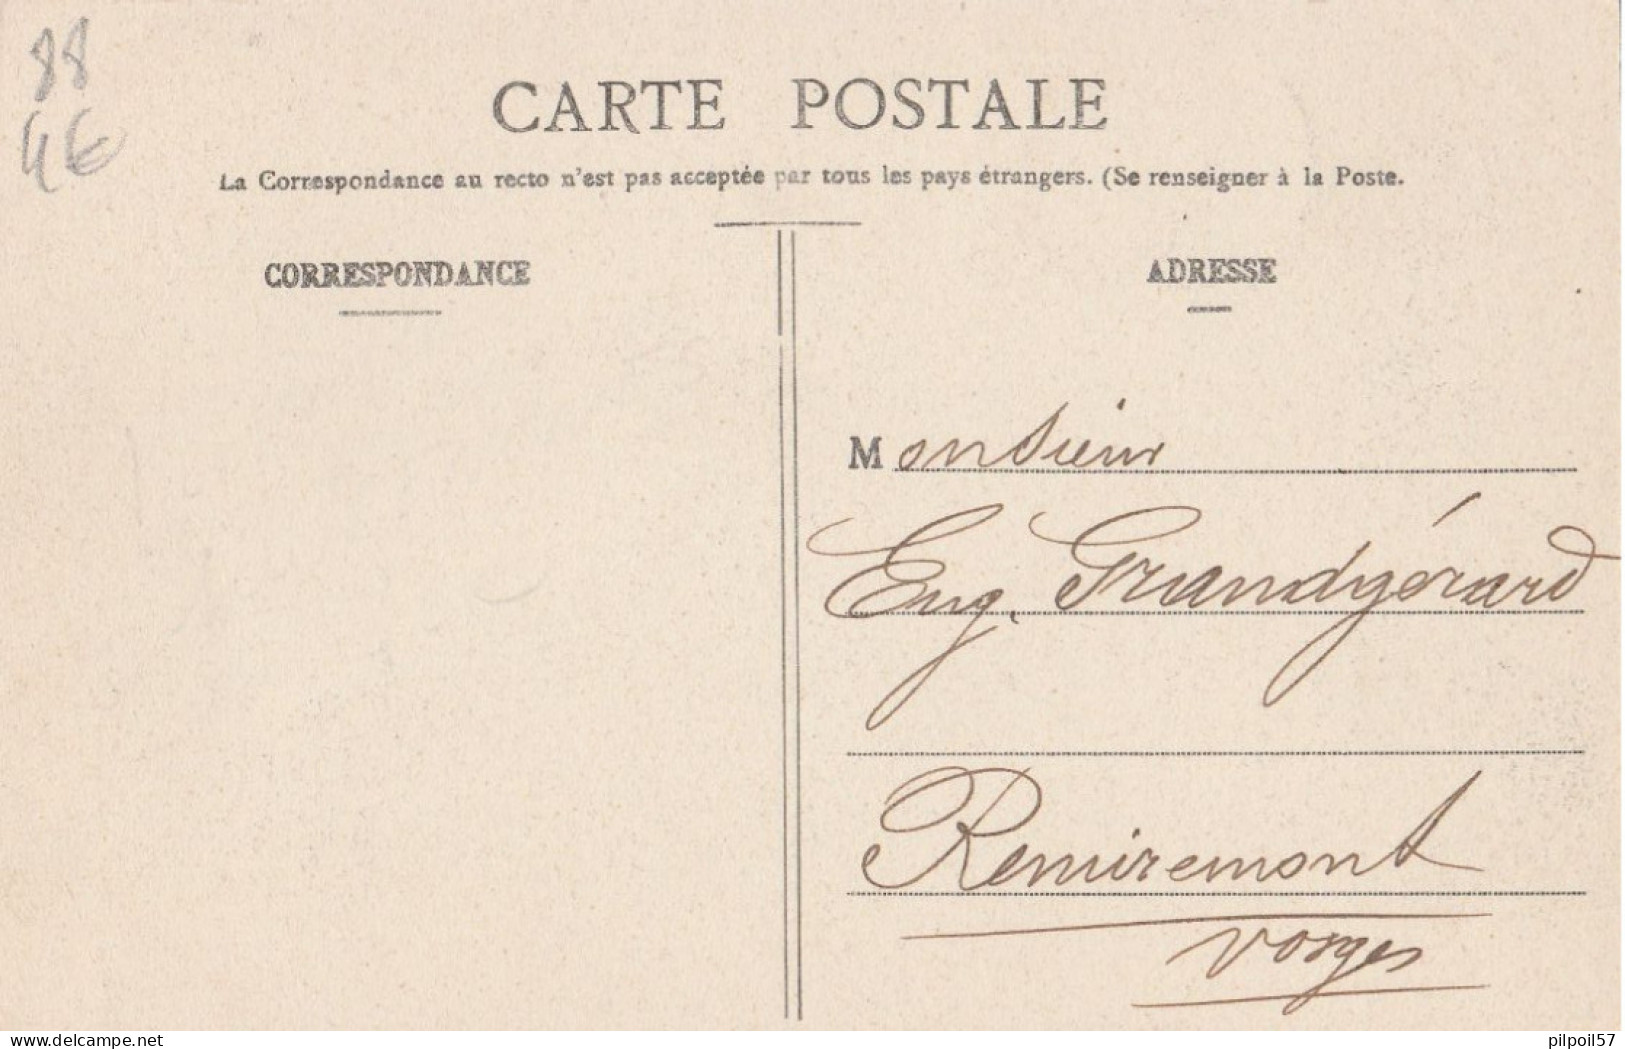 88
4€
CARTE POSTALE
La Correspondance au recto n'est pas acceptée par tous les pays étrangers. (Se renseigner à la Poste.
CORRESPONDANCE
ADRESSE
Monsieur
Eug. Grandgérard
Remiremont
Vosges
www.delcampe.net
pilpoil57